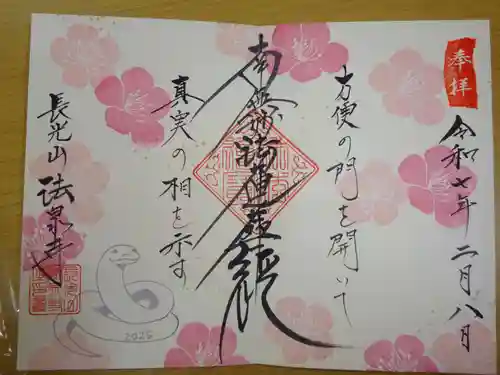 奉拝
令和七年二月八月
方便の門を開いて
南無妙法蓮華経
真実の相を示す
長光山 法泉寺
2025